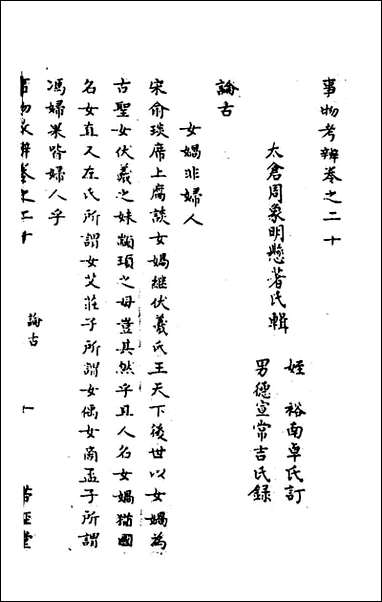 事物考辨卷之二十
太倉周象明懸著氏輯
姪 裕南卓氏訂
男德宣常吉氏錄
論古
女媧非婦人
宋俞琰席上腐談女媧繼伏羲氏王天下後世以女媧為
古聖女伏羲之妹顓頊之母豈其然乎且人名女媧猶國
名女直又左氏所謂女艾莊子所謂女偊女商孟子所謂
馮婦果皆婦人乎
事物考辨卷之二十
論古
一